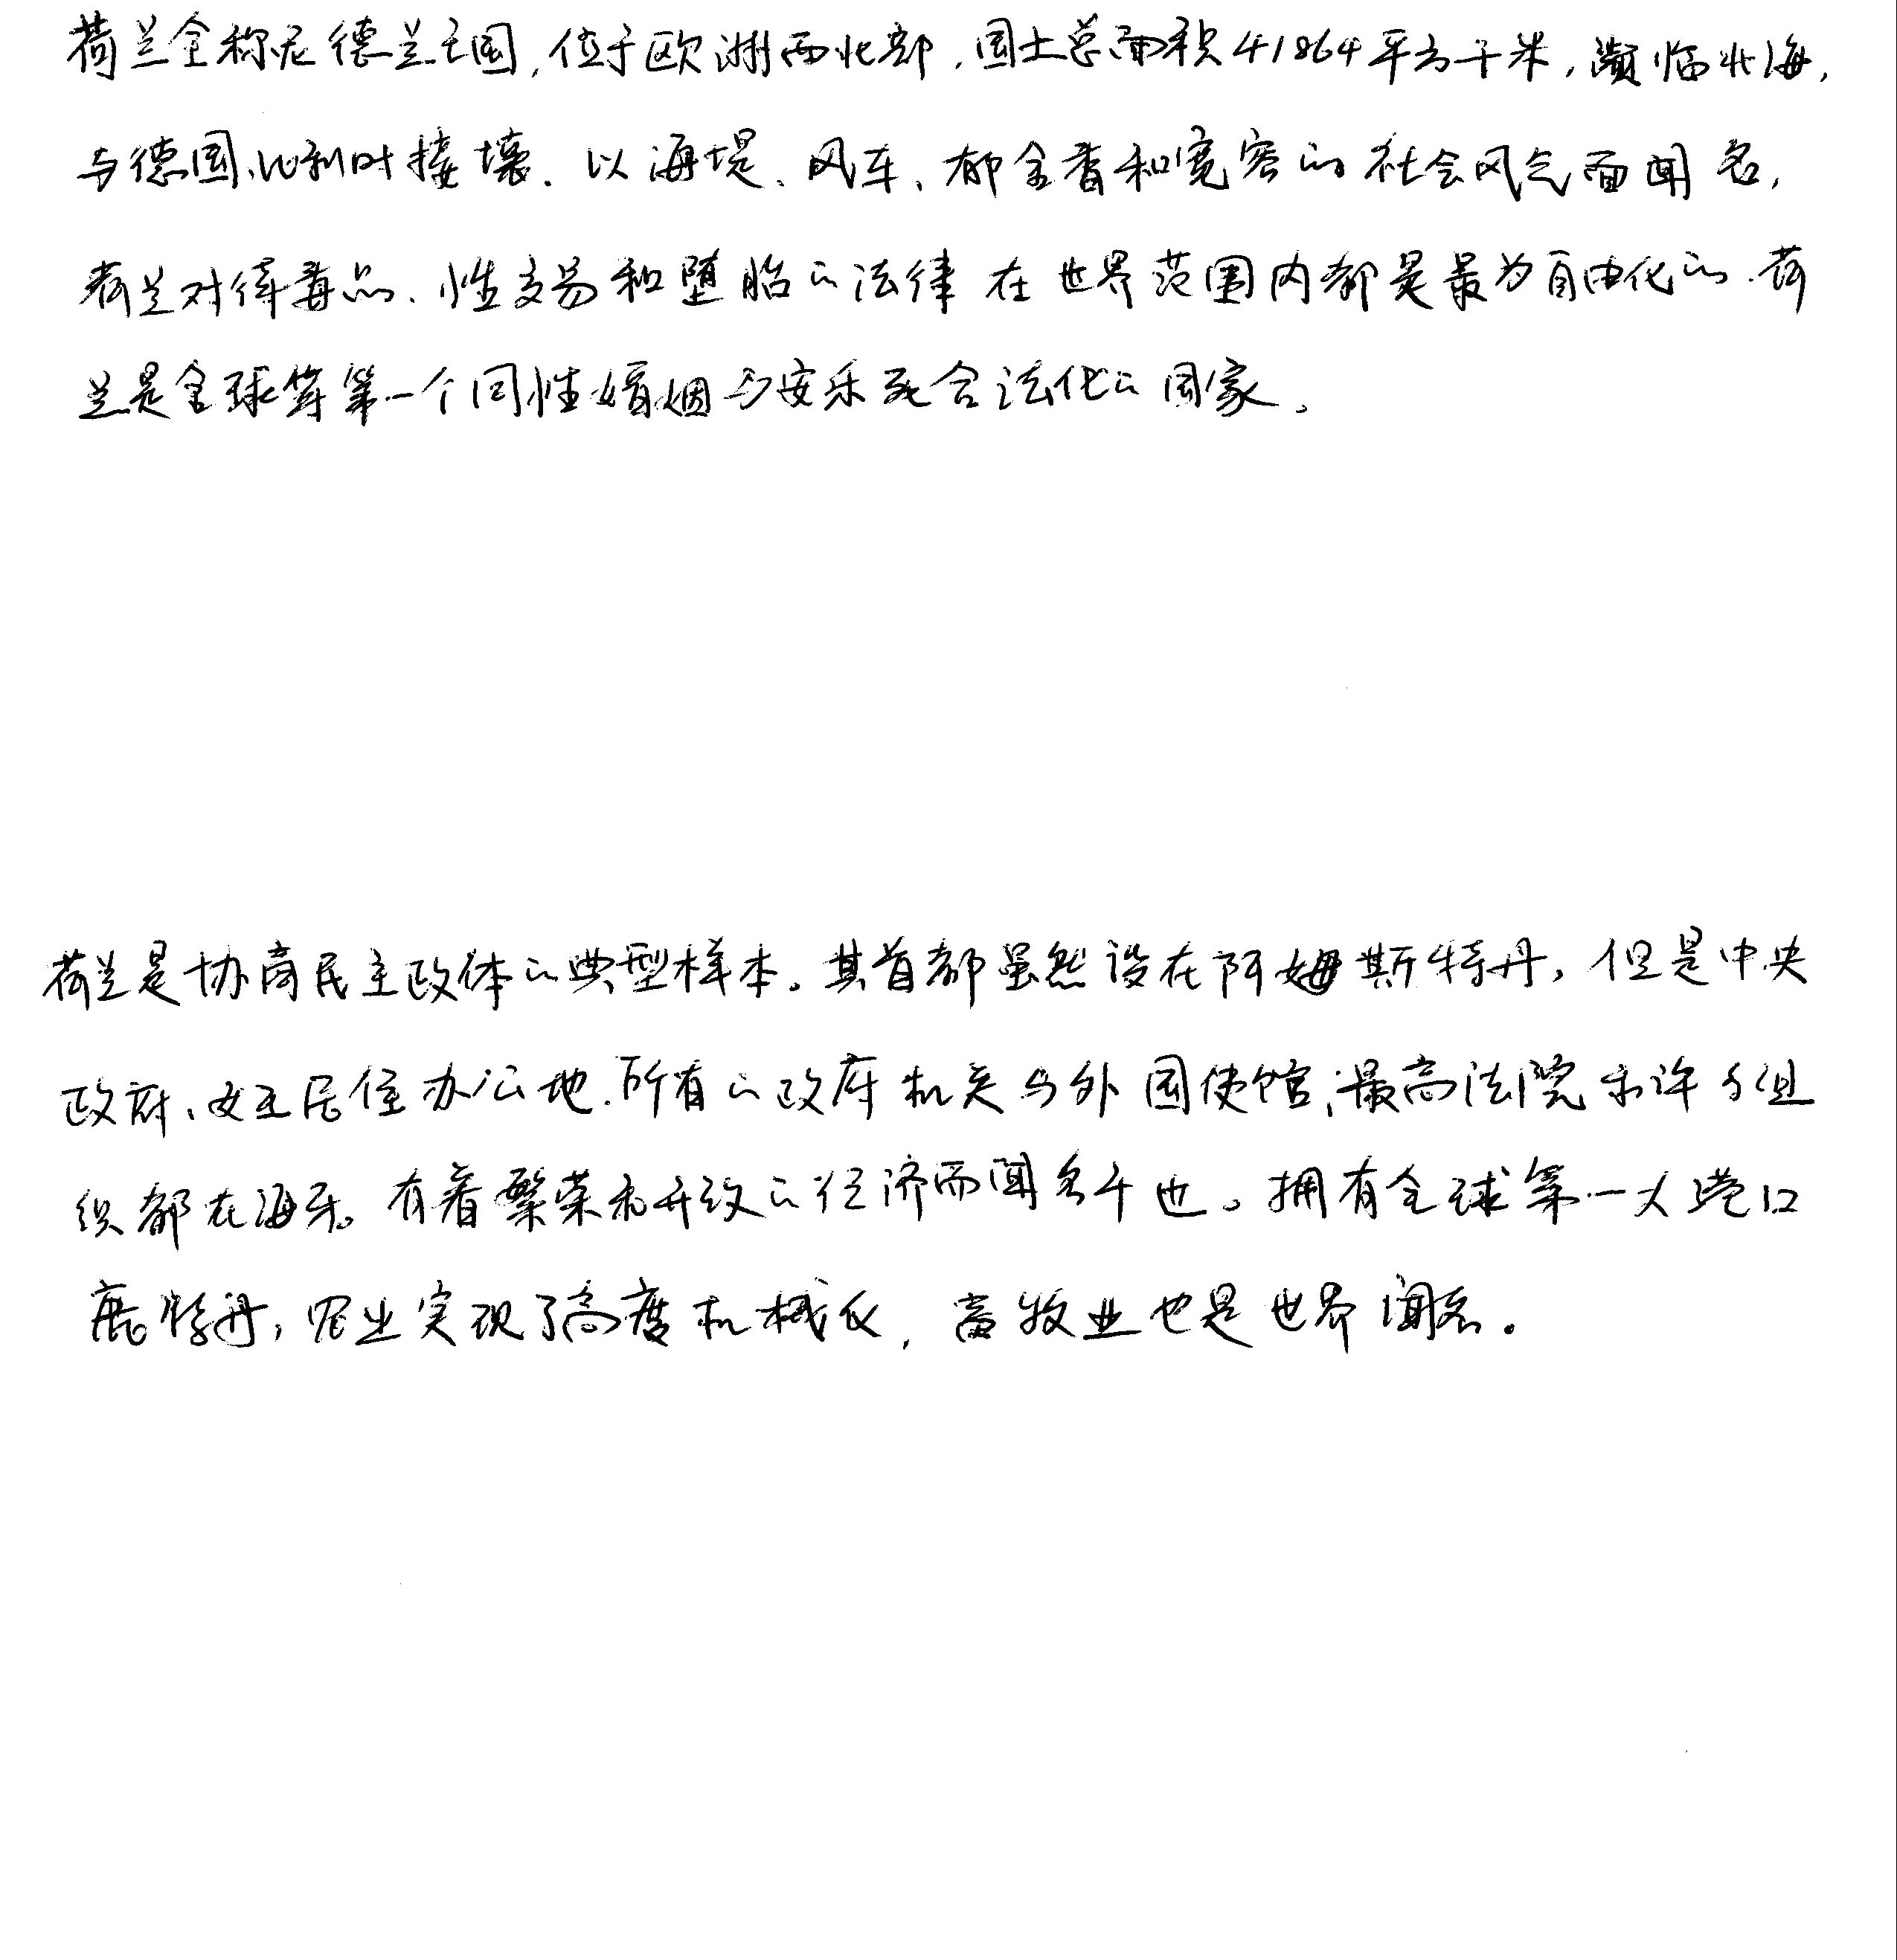 荷兰全称尼德兰王国,位于欧洲西北部,国土总面积41864平方千米,濒临北海,
与德国、比利时接壤。以海堤、风车、郁金香和宽容的社会风气而闻名,
荷兰对待毒品、性交易和堕胎的法律在世界范围内都是最为自由化的.荷
兰是全球第一个同性婚姻与安乐死合法化的国家。
荷兰是协商民主政体的典型样本。其首都虽然设在阿姆斯特丹,但是中央
政府、女王居住办公地.所有的政府机关与外国使馆,最高法院和许多组
织都在海牙。有着繁荣和开放的经济而闻名于世。拥有全球第一大港口
鹿特丹,农业实现了高度机械化,畜牧业也是世界闻名。